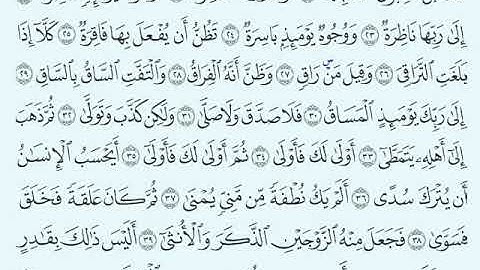 إِلَىٰ رَبِّهَا نَاظِرَةٌ ۝٢٣ وَوُجُوهٌ يَوْمَئِذٍۭ بَاسِرَةٌ ۝٢٤ تَظُنُّ أَن يُفْعَلَ بِهَا فَاقِرَةٌ ۝٢٥ كَلَّآ إِذَا
بَلَغَتِ ٱلتَّرَاقِيَ ۝٢٦ وَقِيلَ مَنْ رَاقٍ ۝٢٧ وَظَنَّ أَنَّهُ ٱلْفِرَاقُ ۝٢٨ وَٱلْتَفَّتِ ٱلسَّاقُ بِٱلسَّاقِ ۝٢٩
إِلَىٰ رَبِّكَ يَوْمَئِذٍ ٱلْمَسَاقُ ۝٣٠ فَلَا صَدَّقَ وَلَا صَلَّىٰ ۝٣١ وَلَٰكِن كَذَّبَ وَتَوَلَّىٰ ۝٣٢ ثُمَّ ذَهَبَ
إِلَىٰٓ أَهْلِهِۦ يَتَمَطَّىٰٓ ۝٣٣ أَوْلَىٰ لَكَ فَأَوْلَىٰ ۝٣٤ ثُمَّ أَوْلَىٰ لَكَ فَأَوْلَىٰٓ ۝٣٥ أَيَحْسَبُ ٱلْإِنسَٰنُ
أَن يُتْرَكَ سُدًى ۝٣٦ أَلَمْ يَكُ نُطْفَةً مِّن مَّنِىٍّ يُمْنَىٰ ۝٣٧ ثُمَّ كَانَ عَلَقَةً فَخَلَقَ
فَسَوَّىٰ ۝٣٨ فَجَعَلَ مِنْهُ ٱلزَّوْجَيْنِ ٱلذَّكَرَ وَٱلْأُنثَىٰٓ ۝٣٩ أَلَيْسَ ذَٰلِكَ بِقَٰدِرٍ